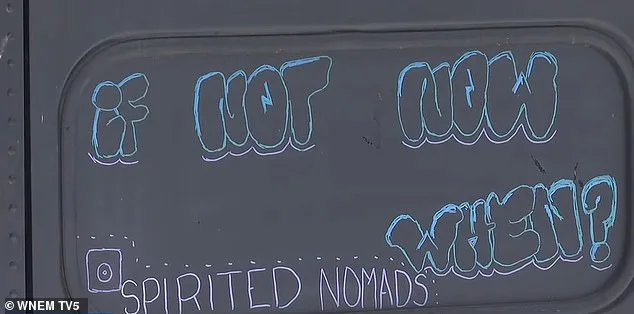 if NOT NOW
WHEN?
SPIRITED NOMADS
© WNEM TV5